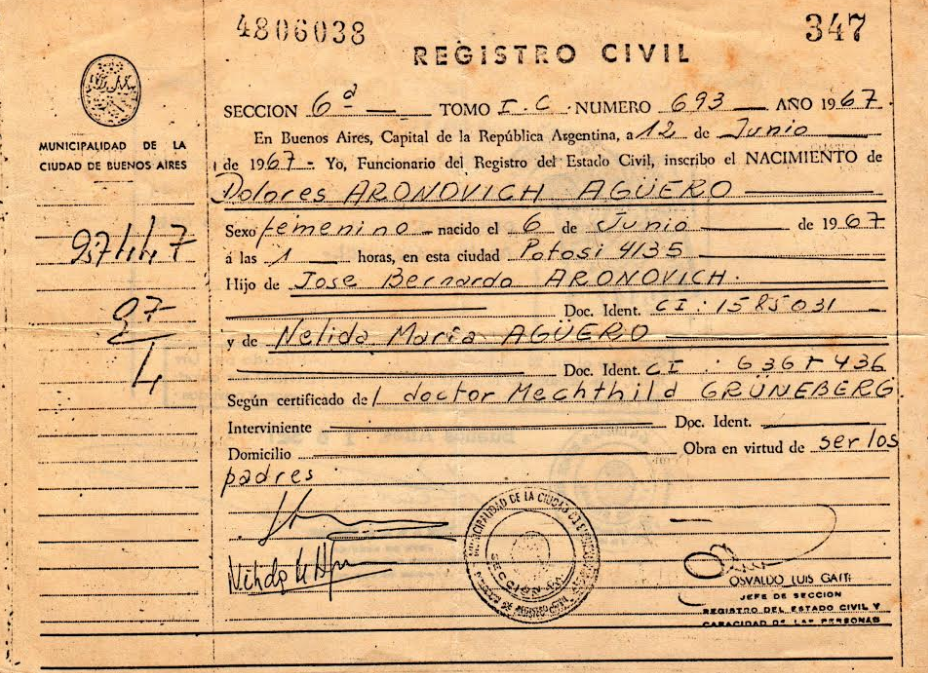 4806038
347
REGISTRO CIVIL
SECCION 6ª TOMO I.C. NUMERO 693 AÑO 1967
MUNICIPALIDAD DE LA
CIUDAD DE BUENOS AIRES
En Buenos Aires, Capital de la República Argentina, a 12 de Junio
de 1967 Yo, Funcionario del Registro del Estado Civil, inscribo el NACIMIENTO de
Dolores ARONOVICH AGÜERO
Sexo femenino nacido el 6 de Junio de 1967
a las 1 horas, en esta ciudad Potosi 4135
Hijo de Jose Bernardo ARONOVICH.
Doc. Ident. CI: 1585031
y de Nelida María AGÜERO
Doc. Ident. CI : 6367436
Según certificado del doctor Mechthild GRÜNEBERG.
Interviniente Doc. Ident.
Domicilio Obra en virtud de ser los
padres.
MUNICIPALIDAD DE LA CIUDAD DE BUENOS AIRES
SECCION
OSVALDO LUIS GAITI
JEFE DE SECCION
REGISTRO DEL ESTADO CIVIL Y
CAPACIDAD DE LAS PERSONAS